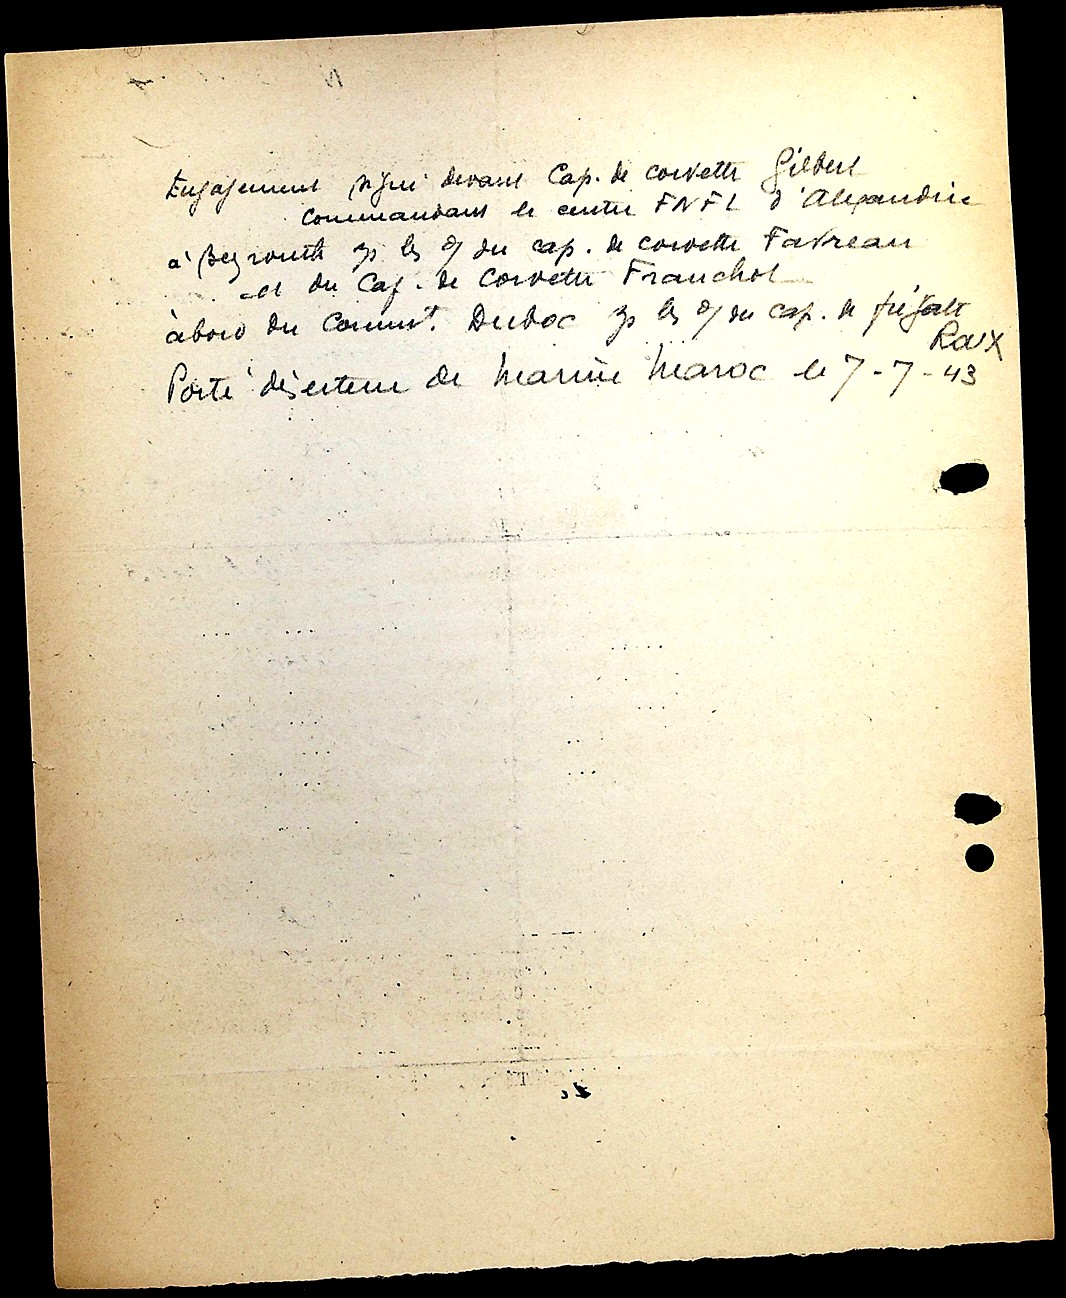 Engagement signé devant Cap. de corvette Gilbert
Commandant le centre FNFL d'Alexandrie
à Beyrouth s/s les o/ du cap. de corvette Favreau
et du Cap. de Corvette Franchot
à bord du Commt. Duboc s/s les o/ du cap. de frégate
Roux
Porté déserteur de Marine Maroc le 7-7-43